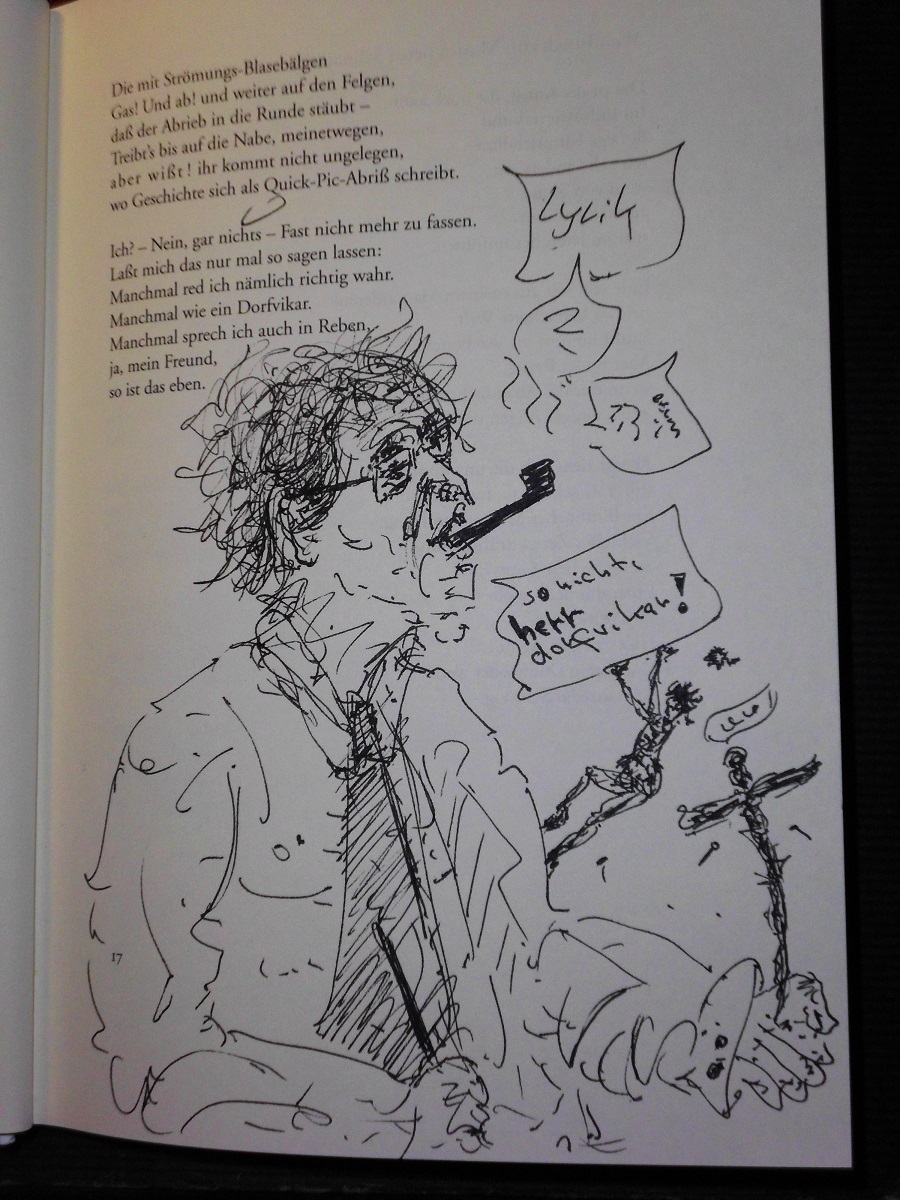 Die mit Strömungs-Blasebälgen
Gas! Und ab! und weiter auf den Felgen,
daß der Abrieb in die Runde stäubt –
Treibt's bis auf die Nabe, meinetwegen,
aber wißt! ihr kommt nicht ungelegen,
wo Geschichte sich als Quick-Pic-Abriß schreibt.
Ich? – Nein, gar nichts – Fast nicht mehr zu fassen.
Laßt mich das nur mal so sagen lassen:
Manchmal red ich nämlich richtig wahr.
Manchmal wie ein Dorfvikar.
Manchmal sprech ich auch in Reben,
ja, mein Freund,
so ist das eben.
Lyrik
so nicht,
herr
dorfvikar!
17